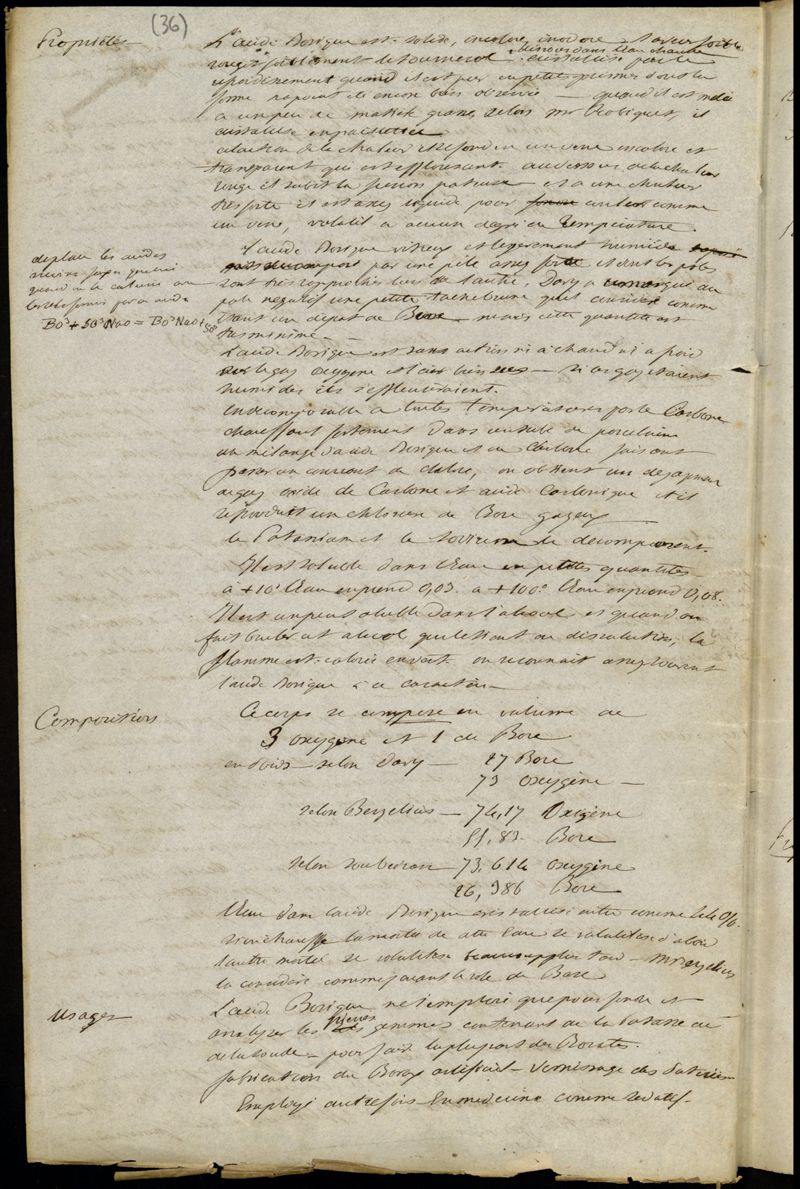 (36)
Propriétés
L'acide Borique est solide, incolore, inodore saveur faible
rougit faiblement le tournesol dissous dans l'eau chaude cristallise par le
refroidissement quand il est pur en petits prismes dont la
forme n'a point été encore bien observée — quand il est mêlé
à un peu de matière grasse, selon Mr Robiquet, il
cristallise en paillettes
à l'action de la chaleur il se fond en un verre incolore et
transparent qui est efflorescent. au dessus de la chaleur
rouge et subit la fusion pateuse et à une chaleur
très forte il est assez liquide pour couler comme
un verre, volatil à aucun degré de Température.
L'acide Borique vitreux et légèrement humide
par une pile assez forte et dont les pôles
sont très rapprochés l'un de l'autre, Davy a remarqué au
pole négatif une petite tache brune qu'il considère comme
étant un dépot de Bore — mais cette quantité est
très minime —
déplace les acides
quand on le calcine avec
Bo³ + So³Nao = Bo³Nao + So³
L'acide Borique est sans action ni à chaud ni à froid
sur le gaz oxygène et l'air bien secs — si les gaz étaient
humides ils s'effleuriraient.
Indécomposable à toutes températures par le Carbone
chauffant fortement dans un tube de porcelaine
un mélange d'acide Borique et de Carbone faisant
passer un courant de chlore, on obtient un dégagement
de gaz oxide de Carbone et acide Carbonique et il
se produit un chlorure de Bore gazeux
le Potassium et le sodium le décomposent.
Il est soluble dans l'Eau en petites quantités
à +10° l'Eau en prend 0,03. à +100° l'Eau en prend 0,08.
Il est un peu soluble dans l'alcool et quand on
fait bruler cet alcool qui le tient en dissolution, la
flamme est colorée en vert. on reconnait assez souvent
l'acide Borique à ce caractère —
Composition
Ce corps se compose en volume de
3 oxygène et 1 de Bore
en Poids — selon Davy — 27 Bore
73 oxygène —
selon Berzelius — 74,17 Oxigène
25,83 Bore
selon Soubeiran — 73,614 oxygène
26,386 Bore
L'Eau dans l'acide Borique cristallisé entre comme 44 0/0.
si on chauffe la moitié de cette Eau se volatilise d'abord
l'autre moitié se volatilise beaucoup plus tard — Mr Berzelius
la considère comme jouant le role de Base
Usages
L'acide Borique ne s'emploie que pour fondre et
analyser les pierres gemmes contenant de la Potasse ou
de la soude — pour faire la plupart des Borates.
fabrication du Borax artificiel — Vernissage des Poteries
Employé autrefois En médecine comme sédatif.